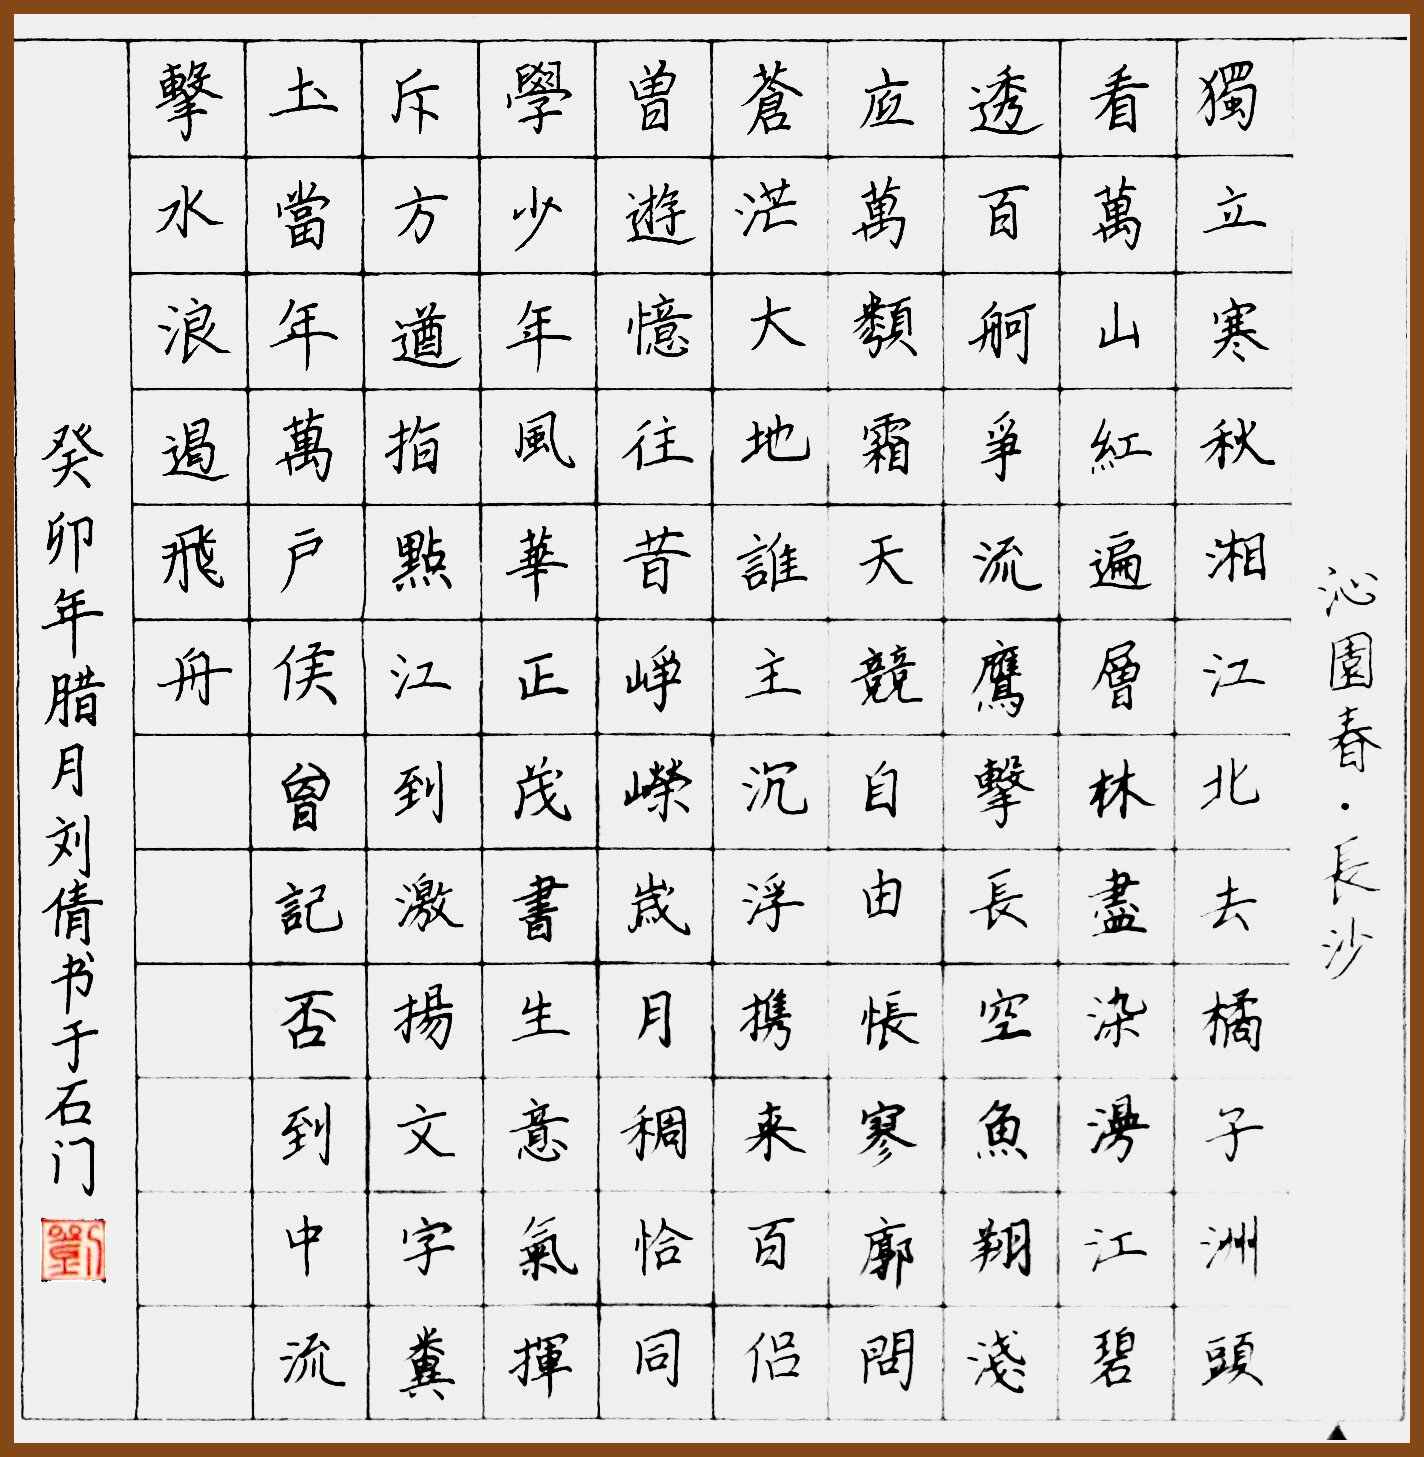 沁園春·長沙
獨立寒秋湘江北去橘子洲頭
看萬山紅遍層林盡染漫江碧
透百舸爭流鷹擊長空魚翔淺
底萬類霜天競自由悵寥廓問
蒼茫大地誰主沉浮携来百侣
曾遊憶往昔崢嶸歲月稠恰同
學少年風華正茂書生意氣揮
斥方遒指點江到激揚文字糞
土當年萬户侯曾記否到中流
擊水浪遏飛舟
癸卯年腊月刘倩书于石门
劉